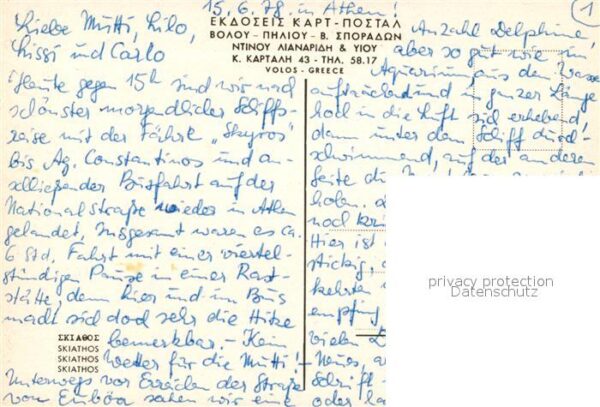 15.6.78, in Athen!
1
Liebe Mutti, Lilo,
Lissi und Carlo
ΕΚΔΟΣΕΙΣ ΚΑΡΤ-ΠΟΣΤΑΛ
ΒΟΛΟΥ - ΠΗΛΙΟΥ - Β. ΣΠΟΡΑΔΩΝ
ΝΤΙΝΟΥ ΛΙΑΝΑΡΙΔΗ & ΥΙΟΥ
Κ. ΚΑΡΤΑΛΗ 43 - ΤΗΛ. 58.17
VOLOS - GREECE
Heute gegen 15h sind wir nach
schönster morgendlicher Schiffs-
reise mit der Fähre „Skyros"
bis Ag. Constantinos und an-
schließender Busfahrt auf der
Nationalstraße wieder in Athen
gelandet, insgesamt waren es ca.
6 Std. Fahrt mit einer viertel-
stündigen Pause in einer Rast-
stätte, denn hier und im Bus
macht sich doch sehr die Hitze
bemerkbar. - Kein
Wetter für die Mutti! -
ΣΚΙΑΘΟΣ
SKIATHOS
SKIATHOS
SKIATHOS
Unterwegs vor Erreichen der Straße
von Euböa sahen wir eine
Anzahl Delphine,
aber so gut wie im
Aquarium, aus dem Wasser
auftauchend und in ganzer Länge
hoch in die Luft sich erhebend,
dann unter dem Schiff durch-
schwimmend, auf der anderen
Seite die
holen.
noch
Hier ist
stickig,
empfing
vielen
Neues,
Schrift-
oder
privacy protection
Datenschutz